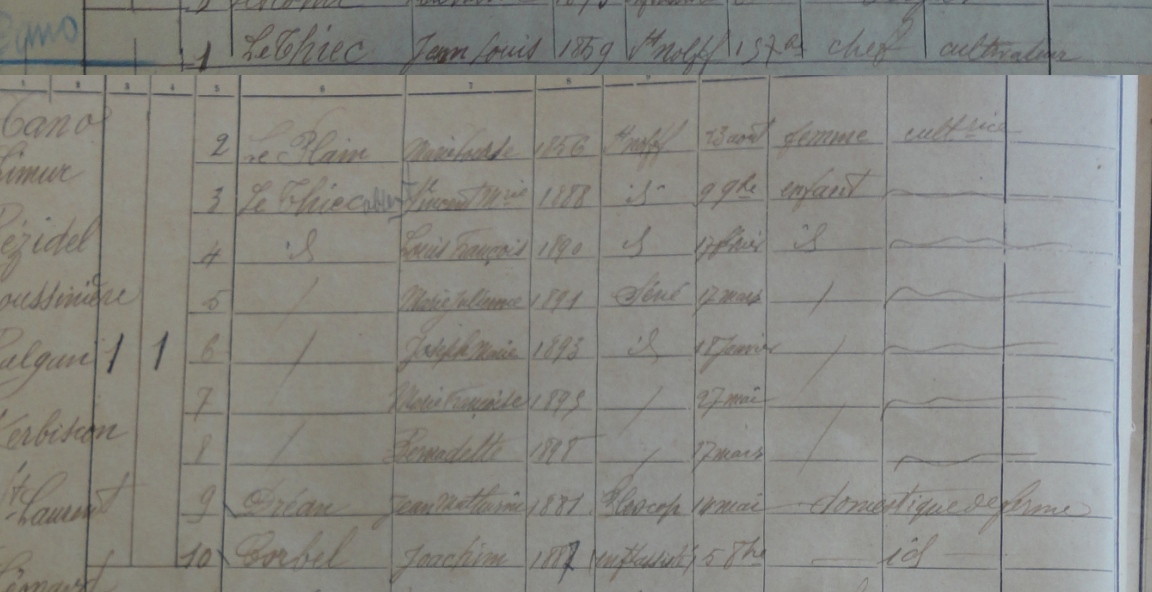 1 Le Thiec Jean Louis 1859 St Nolff chef cultivateur
1 2 3 4 5 6 7 8
2 Le Plain 1856 St Nolff 23 août femme cultrice
3 Le Thiec Vincent Mrie 1888 id 9 9bre enfant
4 id Louis François 1890 id 17 février id
5 / Marie Julienne 1891 Séné 17 mars /
1 1 6 / Joseph Marie 1893 id 18 Janvier /
7 Marie Françoise 1895 / 27 mai
8 / Bernadette 1898 / 17 mars /
9 Dréan Jean Mathurin 1881 Plescop 14 mai domestique de ferme
10 Corbel Joachim 1887 5 8bre id
Cano
Limur
Bézidel
oussinière
algan
Kerbiscon
St Laurent